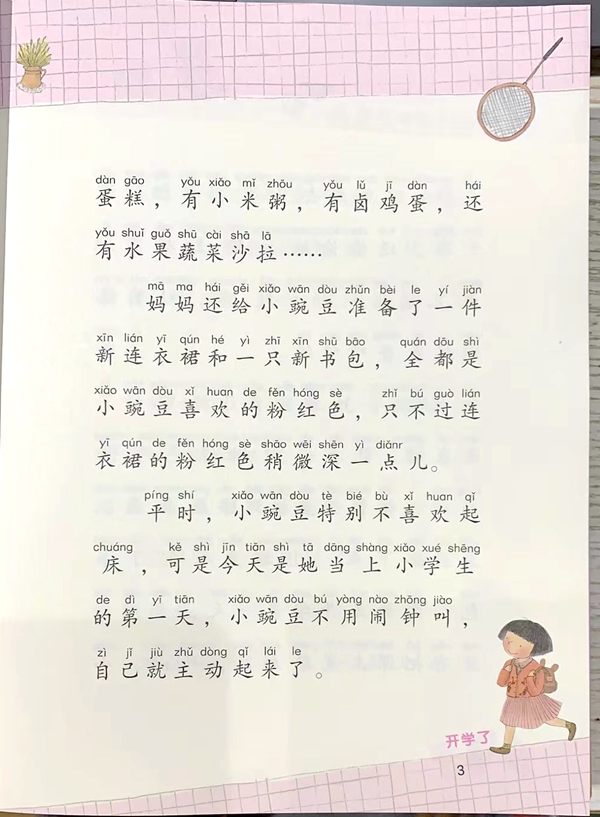 dàn gāo yǒu xiǎo mǐ zhōu yǒu lǔ jī dàn hái
蛋糕，有小米粥，有卤鸡蛋，还
yǒu shuǐ guǒ shū cài shā lā
有水果蔬菜沙拉……
mā ma hái gěi xiǎo wān dòu zhǔn bèi le yí jiàn
妈妈还给小豌豆准备了一件
xīn lián yī qún hé yì zhī xīn shū bāo quán dōu shì
新连衣裙和一只新书包，全都是
xiǎo wān dòu xǐ huan de fěn hóng sè zhǐ bú guò lián
小豌豆喜欢的粉红色，只不过连
yī qún de fěn hóng sè shāo wēi shēn yì diǎnr
衣裙的粉红色稍微深一点儿。
píng shí xiǎo wān dòu tè bié bù xǐ huan qǐ
平时，小豌豆特别不喜欢起
chuáng kě shì jīn tiān shì tā dāng shàng xiǎo xué shēng
床，可是今天是她当上小学生
de dì yī tiān xiǎo wān dòu bú yòng nào zhōng jiào
的第一天，小豌豆不用闹钟叫，
zì jǐ jiù zhǔ dòng qǐ lái le
自己就主动起来了。
开学了
3